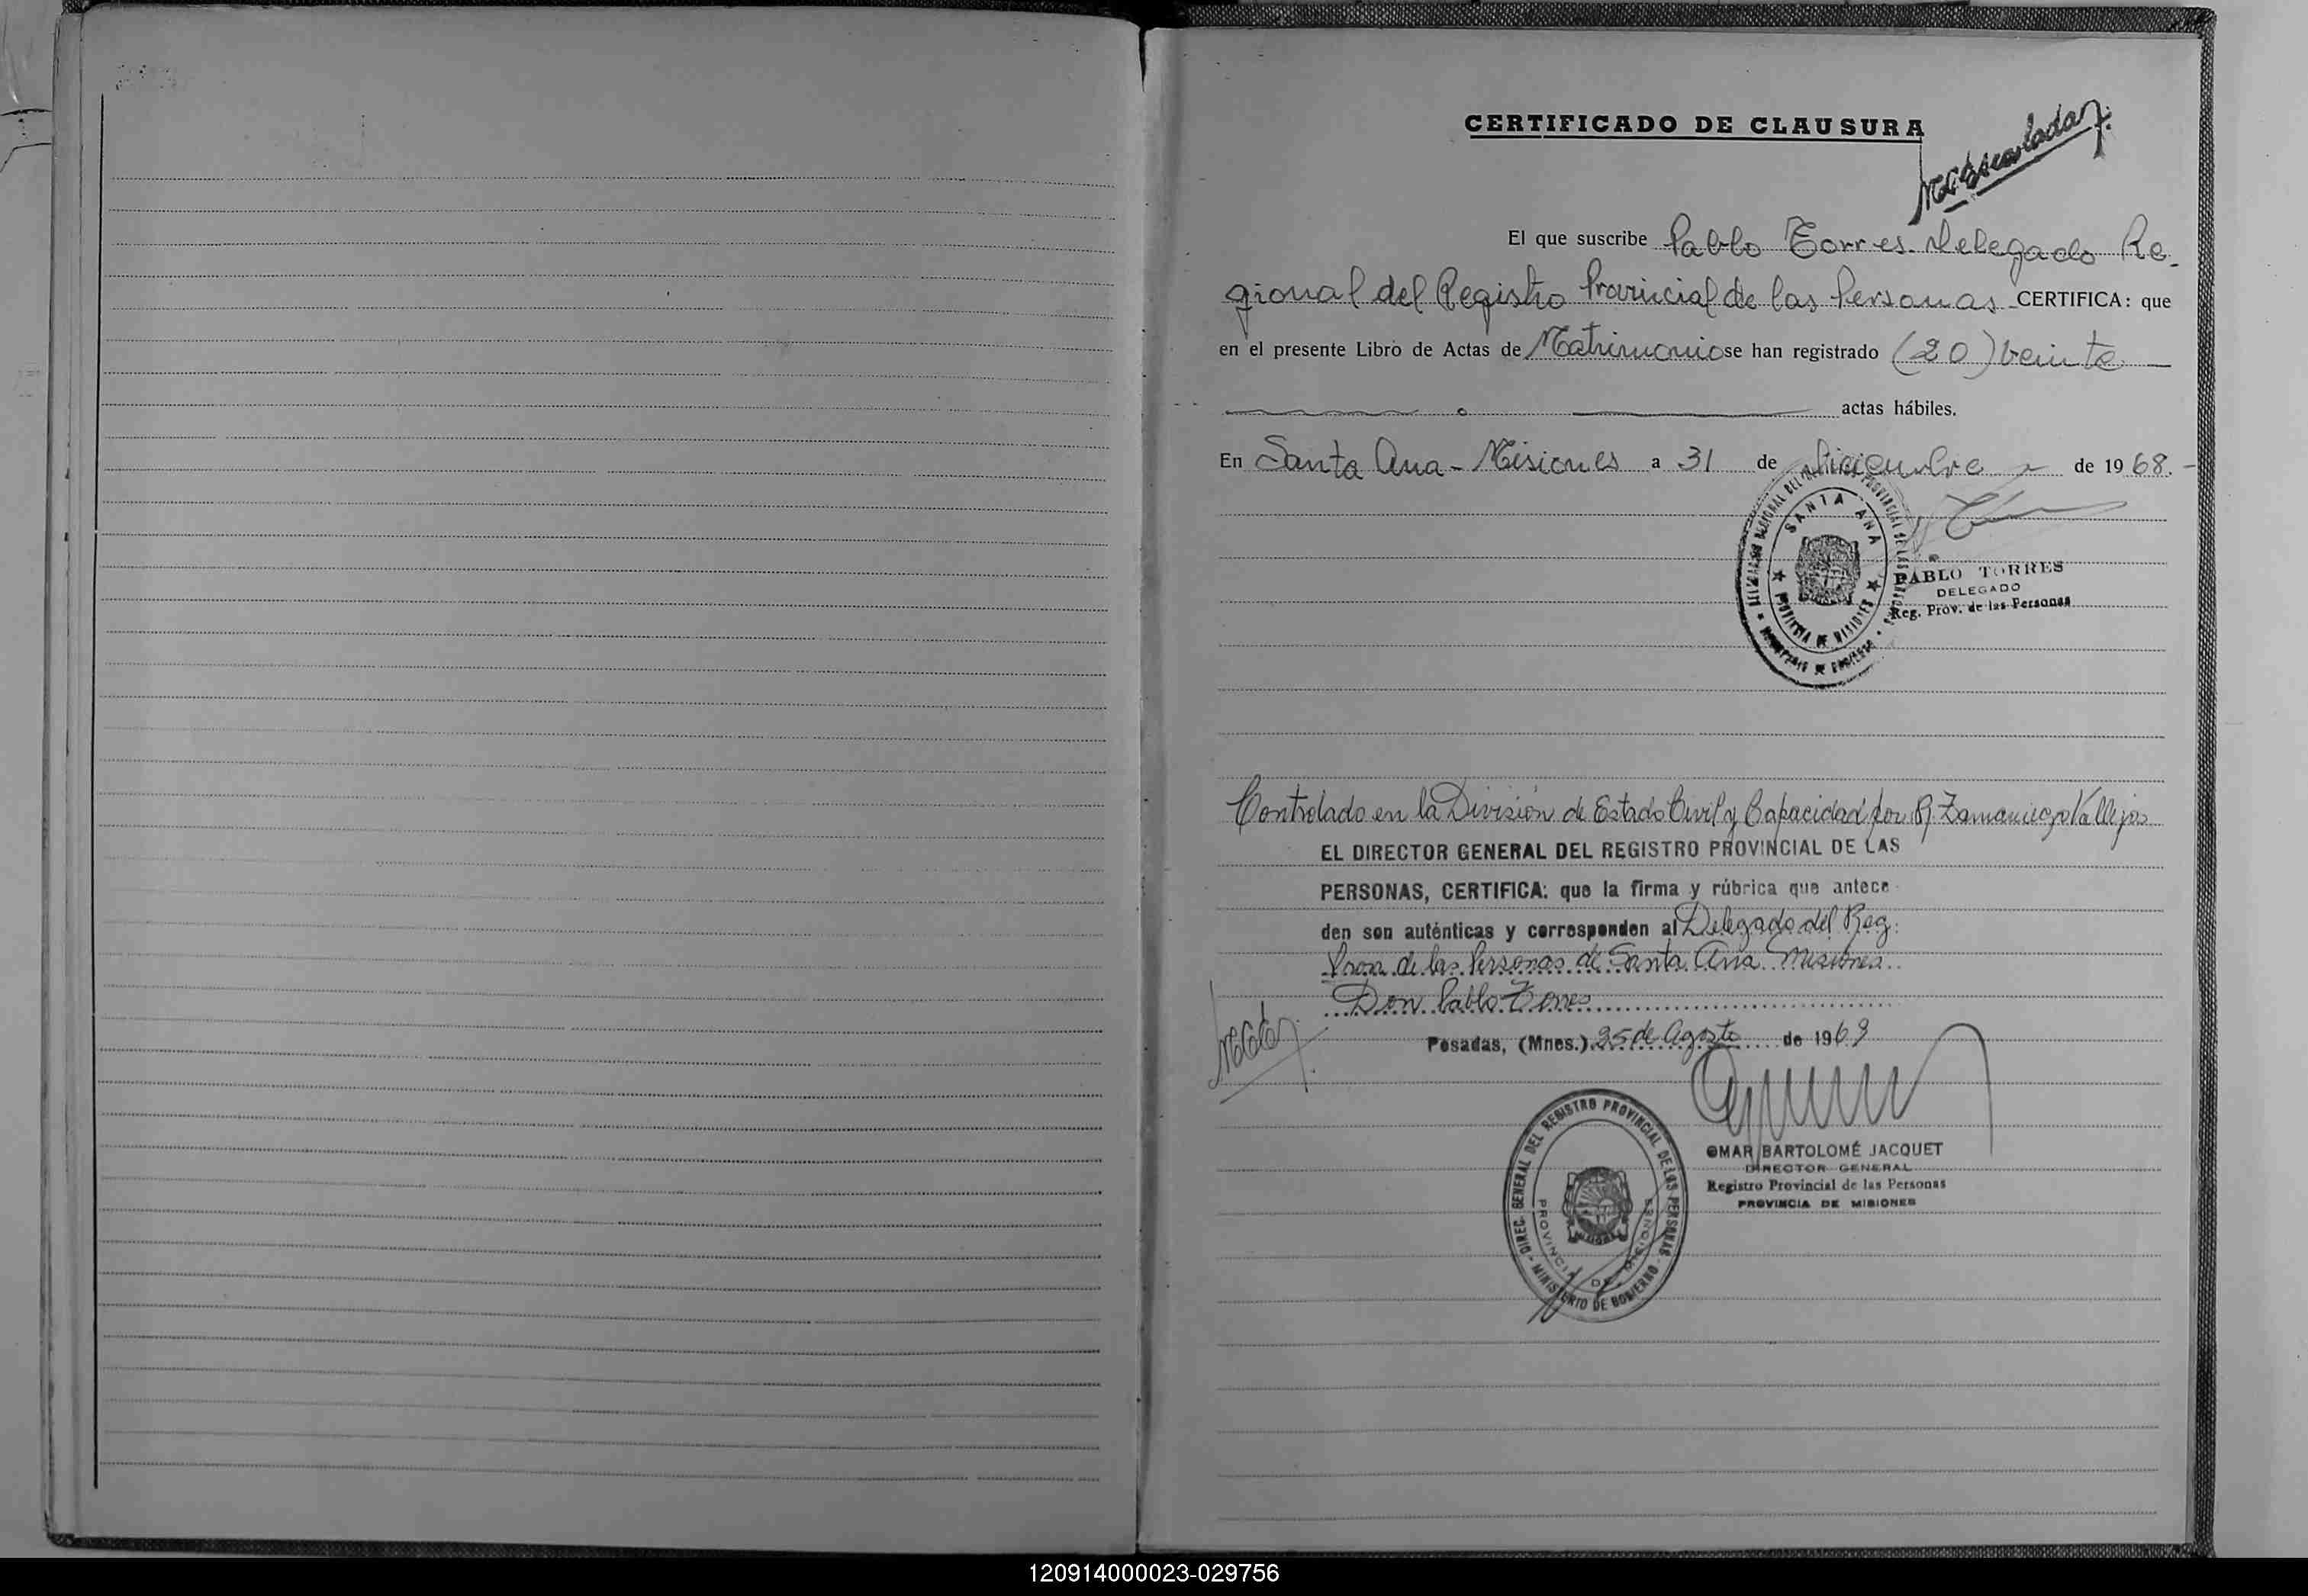 CERTIFICADO DE CLAUSURA
El que suscribe Pablo Torres Delegado Re-
gional del Registro Provincial de las Personas CERTIFICA: que
en el presente Libro de Actas de Matrimonio se han registrado (20) veinte
actas hábiles.
En Santa Ana - Misiones a 31 de Diciembre de 1968.-
SANTA ANA
PROVINCIA DE MISIONES
PABLO TORRES
DELEGADO
Reg. Prov. de las Personas
Controlado en la División de Estado Civil y Capacidad por R. Zamaniego Vallejos
EL DIRECTOR GENERAL DEL REGISTRO PROVINCIAL DE LAS
PERSONAS, CERTIFICA: que la firma y rúbrica que antece-
den son auténticas y corresponden al Delegado del Reg.
de las Personas de Santa Ana Misiones
Don Pablo Torres
Posadas, (Mnes.) 25 de Agosto de 1969
DIREC. GENERAL DEL REGISTRO PROVINCIAL DE LAS PERSONAS
MINISTERIO DE GOBIERNO
PROVINCIA DE MISIONES
OMAR BARTOLOMÉ JACQUET
DIRECTOR GENERAL
Registro Provincial de las Personas
PROVINCIA DE MISIONES
120914000023-029756